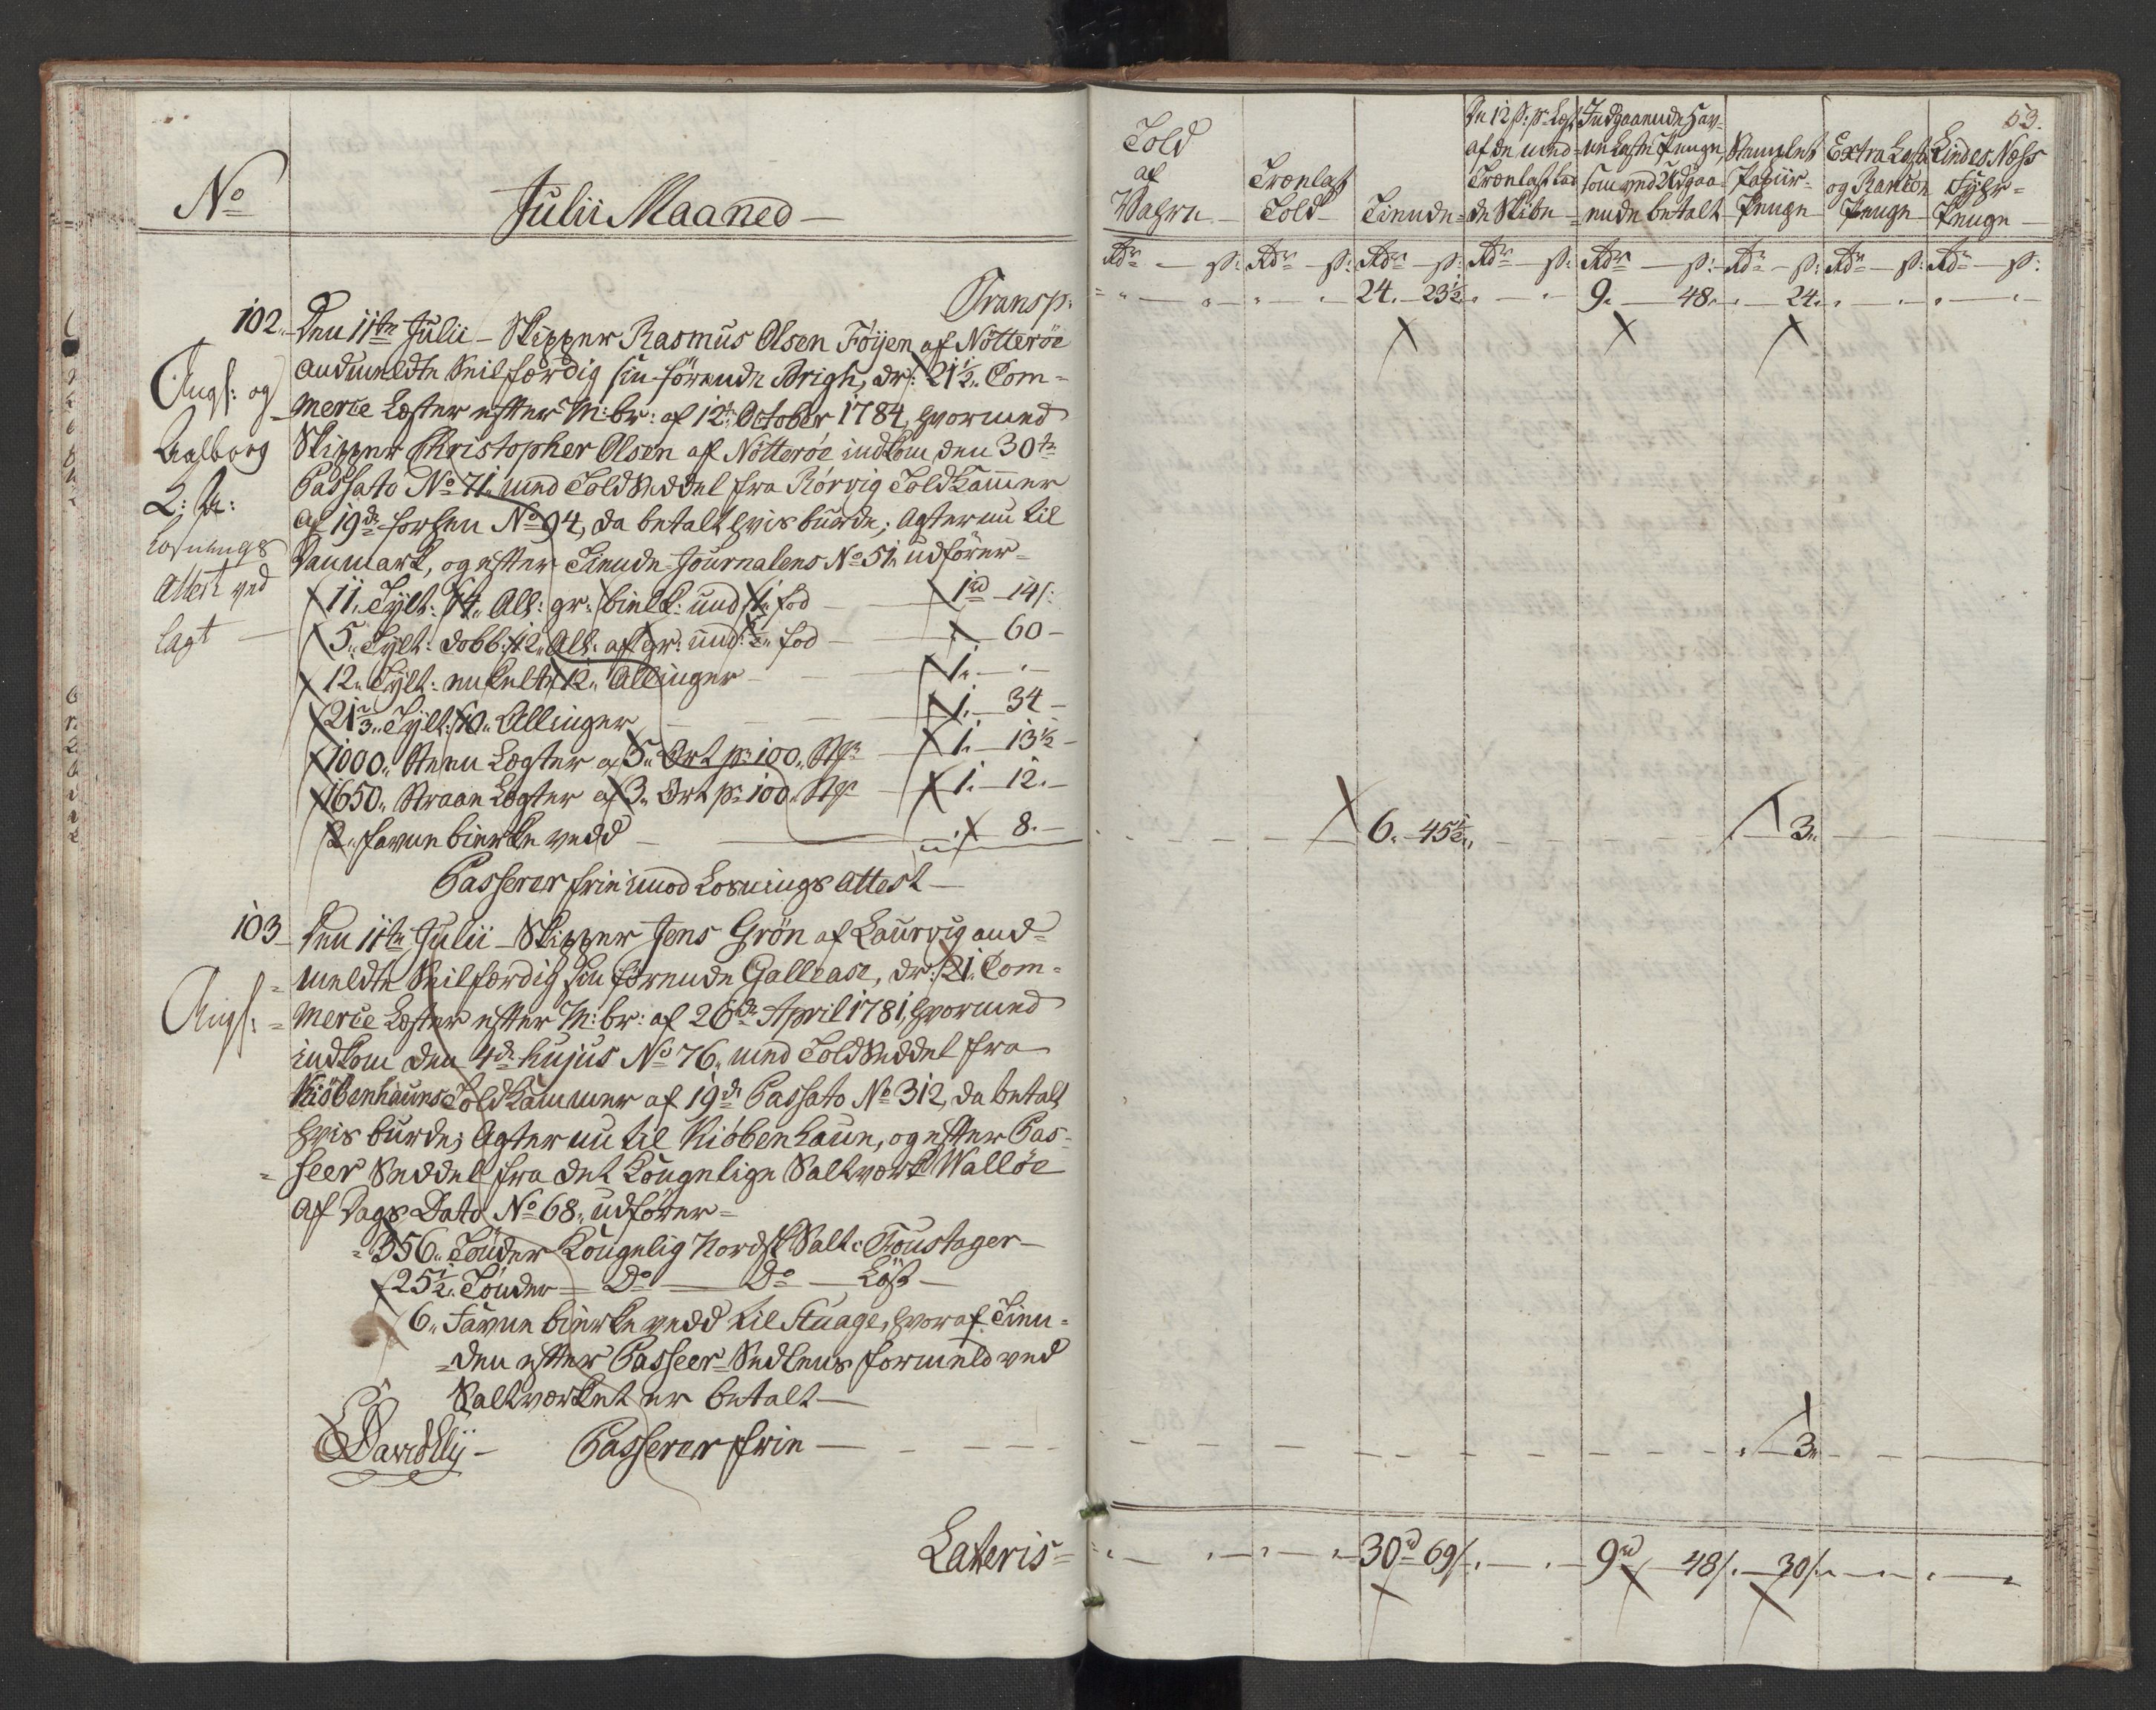 No
Julii Maaned
Transp:
102. Den 11te Julii - Skipper Rasmus Olsen Föÿen af Nötteröe
andmeldte Seilfærdig sin förende Brigh, dr: 21½ Com-
Angf: og
merce Læster efter M:br: af 12te October 1784, hvormed
Aalborg
Skipper Christopher Olsen af Nötteröe indkom den 30te
L: Ss:
Passato No 71 med Toldseddel fra Rörvig Toldkammer
Losnings
af 19de forhen No 94, da betalt hvis burde; Agter nu til
Attest ved
Danmark, og efter Tiende-Journalens No 51 udförer-
lagt
11. Tÿlt: 14. All: gr: bielk: und 1 fod - 1rd 14s:
5. Tÿlt: dobb: 12. All: af gr: und: ½ fod - 60 -
12. Tÿlt: enkelte 12. Allinger - 1. - . -
21⅔. Tÿlt: 10. Allinger - 1. 34 -
1000. Steen Lægter a 5. Ort pr 100. Stk - 1. 13½ -
1650. Straae Lægter a 3. Ort pr 100. Stk - 1. 12. -
2. favne birke vedd - 8. -
Passerer frie imod Losnings Attest -
103 Den 11te Julii - Skipper Jens Grön af Laurvig and-
meldte Seilfærdig sin förende Gallease, dr: 21. Com-
Angf:
merce Læster efter M:br: af 26de April 1781, hvormed
indkom den 4de hujus No 76. med Toldseddel fra
Kiöbenhauns Toldkammer af 19de Passato No 312, da betalt
hvis burde; Agter nu til Kiöbenhaun, og efter Pas-
seer Seddel fra det Kongelige Saltværk Wallöe
af Dags Dato No 68. udförer-
356. Tönder Kongelig Nordsk Salt: Foustager -
25½. Tönder - Do - Do - Löst -
6. Favne birke vedd til Stuage, hvoraf Tien-
den efter Passeer-Sedlens formeld ved
Saltværket er betalt -
Passerer frie -
Lateris
53.
Told af Vahre
Trælast Told
Tiende
De 12 s: pr Læst af de med Trælast lad de Skibe
Indgaaende Hav- ne Læste Penge, som ved Udgaa- ende betalt
Stemplet Papiir- Penge
Extra Læste og Rancon Penge
Lindes Næss Fÿhr- Penge
Rdr - s: Rdr - s: Rdr - s: Rdr - s: Rdr - s: Rdr - s: Rdr - s: Rdr - s:
24. 23½ 9. 48. 24.
6. 45½ 3.
3.
30rd 69s 9rd 48s 30s